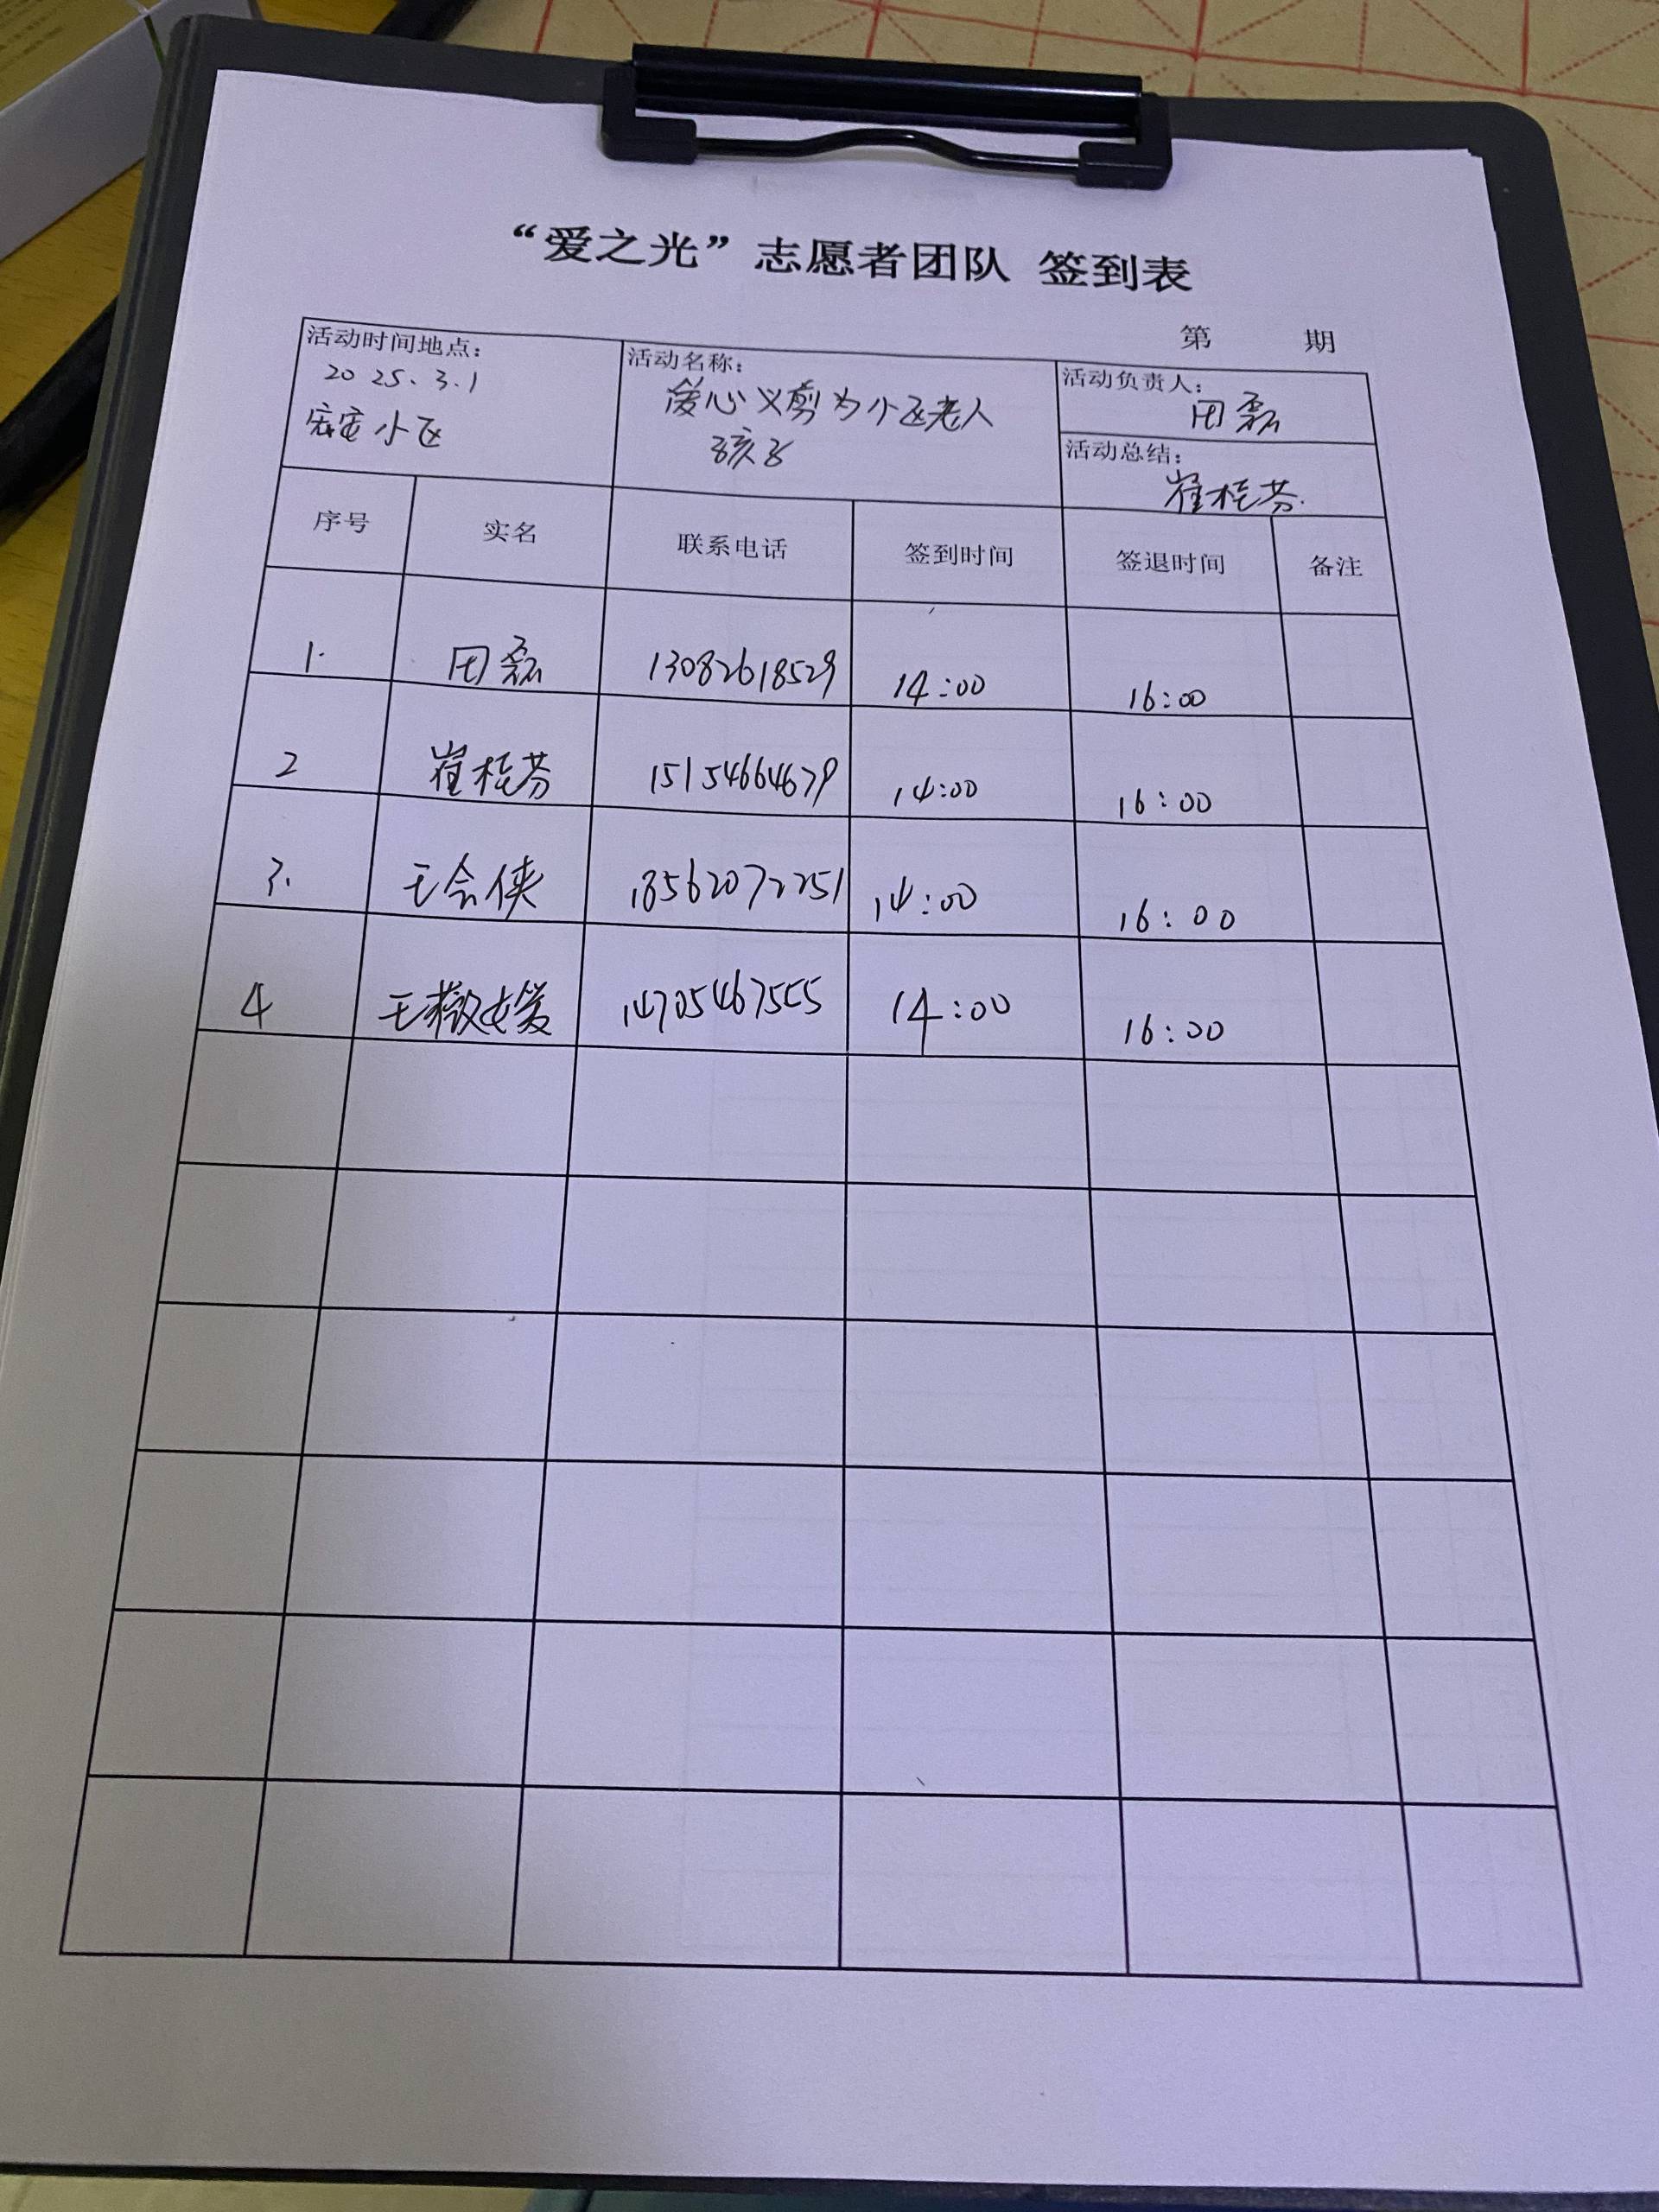 “爱之光”志愿者团队 签到表
第 期
活动时间地点： 活动名称： 活动负责人：
2025.3.1 爱心义剪为小区老人 田磊
小区 孩子 活动总结：
崔桂芬
序号 实名 联系电话 签到时间 签退时间 备注
1. 田磊 13082618529 14:00 16:00
2 崔桂芬 15154664679 14:00 16:00
3. 王会侠 18562072251 14:00 16:00
4 王 14705467555 14:00 16:00